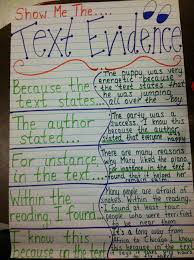 Show Me The....
Text Evidence
Because the
text states...
The puppy was very
energetic because
the text states that
he was jumping
all over the boy
The author
stated...
The party was a
success. I know this
because the author
stated that everyone
For instance
in the text...
There are many reasons
why Mary liked the piano.
For instance in the text
found this it helped her
Within the
reading, I found
Many people are afraid of
snakes. Within the reading,
I found at least four
people who were terrified
I know this
because in the text
It's a long way from
Africa to Chicago. I
know this because in the